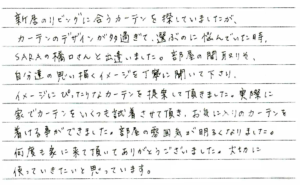 新居のリビングに合うカーテンを探していましたが、
カーテンのデザインが多過ぎて、選ぶのに悩んでいた時、
SARAの橋口さんと出逢いました。部屋の間取りや、
自分達の思い描くイメージを丁寧に聞いて下さり、
イメージにぴったりなカーテンを提案して頂きました。実際に
家でカーテンをいくつも試着させて頂き、お気に入りのカーテンを
着ける事ができました。部屋の雰囲気が明るくなりました。
何度も家に来て頂いてありがとうございました。大切に
使っていきたいと思っています。